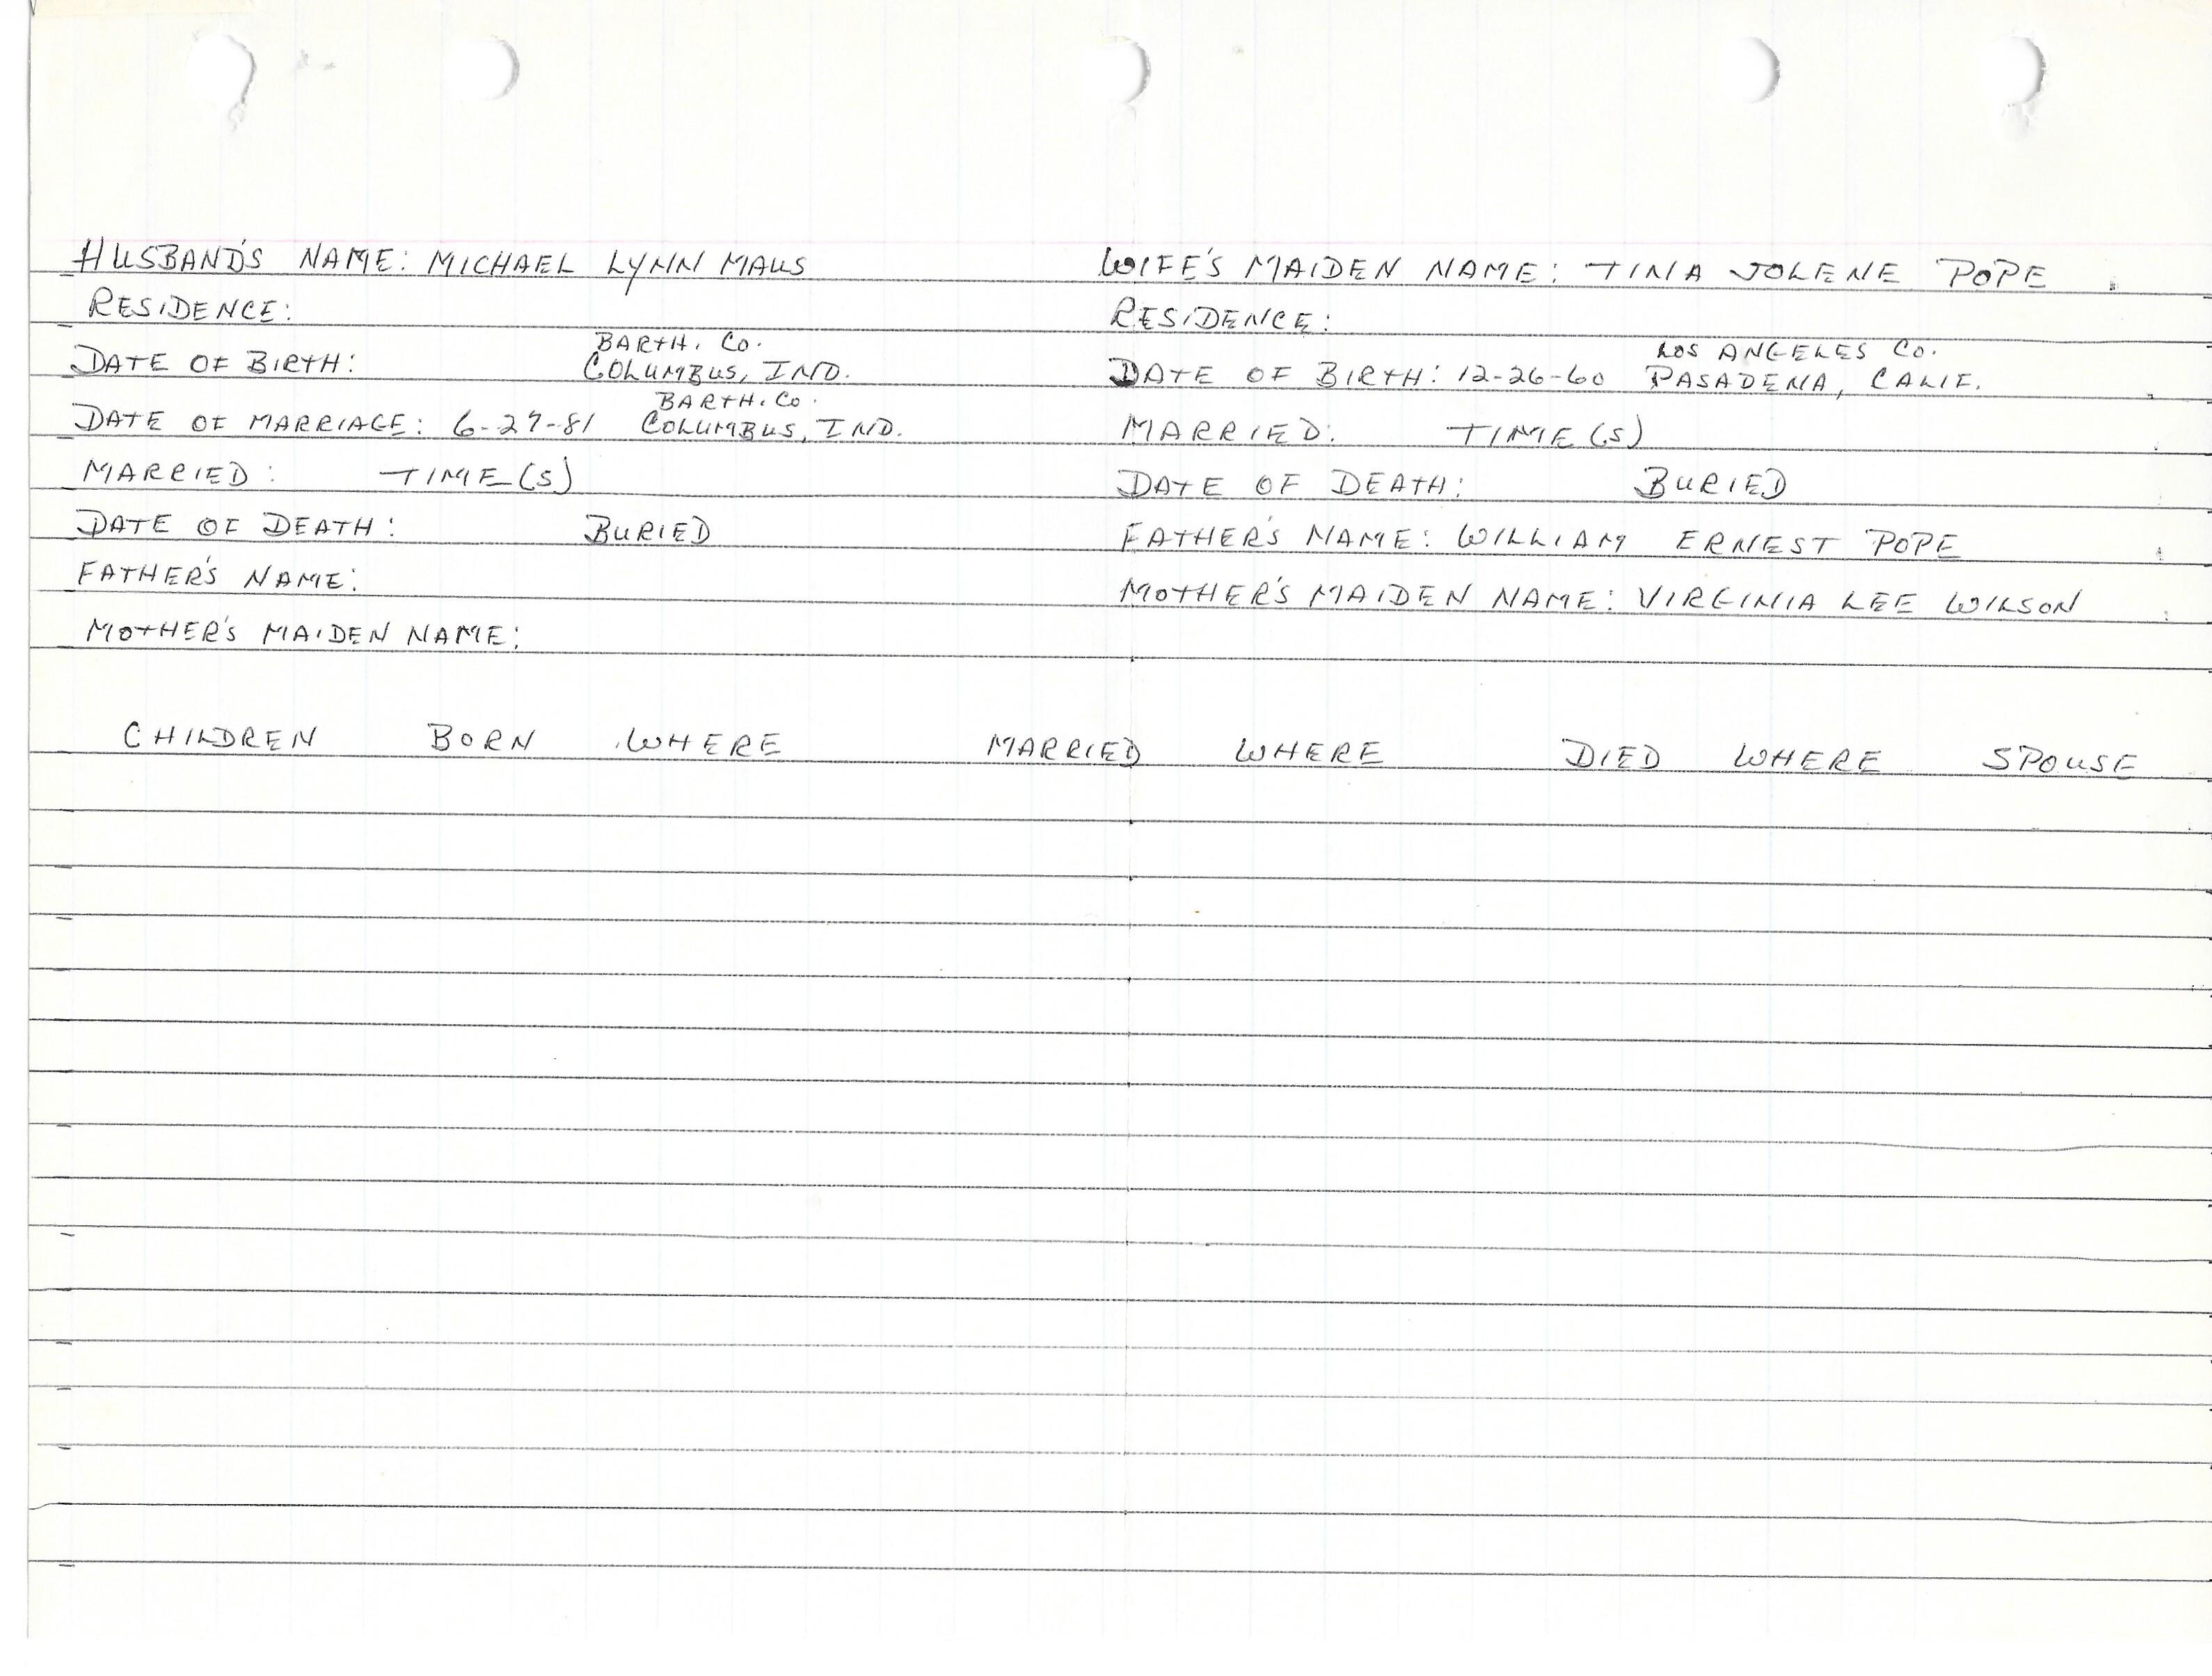 HUSBAND'S NAME: MICHAEL LYNN MAUS
RESIDENCE:
BARTH. CO.
DATE OF BIRTH: COLUMBUS, IND.
BARTH. CO.
DATE OF MARRIAGE: 6-27-81 COLUMBUS, IND.
MARRIED: TIME(S)
DATE OF DEATH: BURIED
FATHER'S NAME:
MOTHER'S MAIDEN NAME:
WIFE'S MAIDEN NAME: TINA JOLENE POPE
RESIDENCE:
LOS ANGELES CO.
DATE OF BIRTH: 12-26-60 PASADENA, CALIF.
MARRIED: TIME(S)
DATE OF DEATH: BURIED
FATHER'S NAME: WILLIAM ERNEST POPE
MOTHER'S MAIDEN NAME: VIRGINIA LEE WILSON
CHILDREN BORN WHERE MARRIED WHERE DIED WHERE SPOUSE